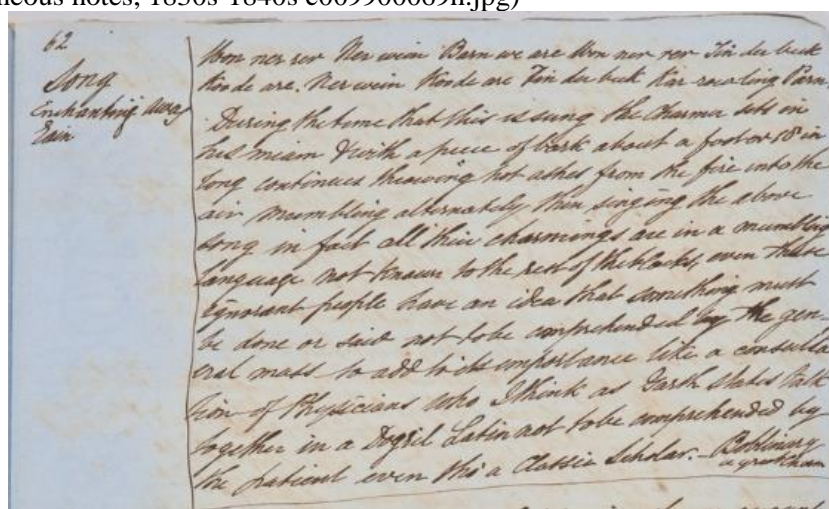 62
Song
Enchanting away
Rain
Won ner rer Ner wein Barn we are Won ner rer Tin der buck
Koode are. Ner wein Koode are Tin der buck Kar
During the time that this is sung the Charmer sits in
his miam & with a piece of bark about a foot or 18 in
long continues throwing hot ashes from the fire into the
air mumbling alternately then singing the above
song in fact all their charmings are in a mumbling
language not known to the rest of the blacks, even these
ignorant people have an idea that something must
be done or said not to be comprehended by the gen-
eral mass to add to its importance like a consulta
tion of Physicians who I think as states talk
together in a Dogril Latin not to be comprehended by
the patient even tho' a Classic Scholar. -
a great